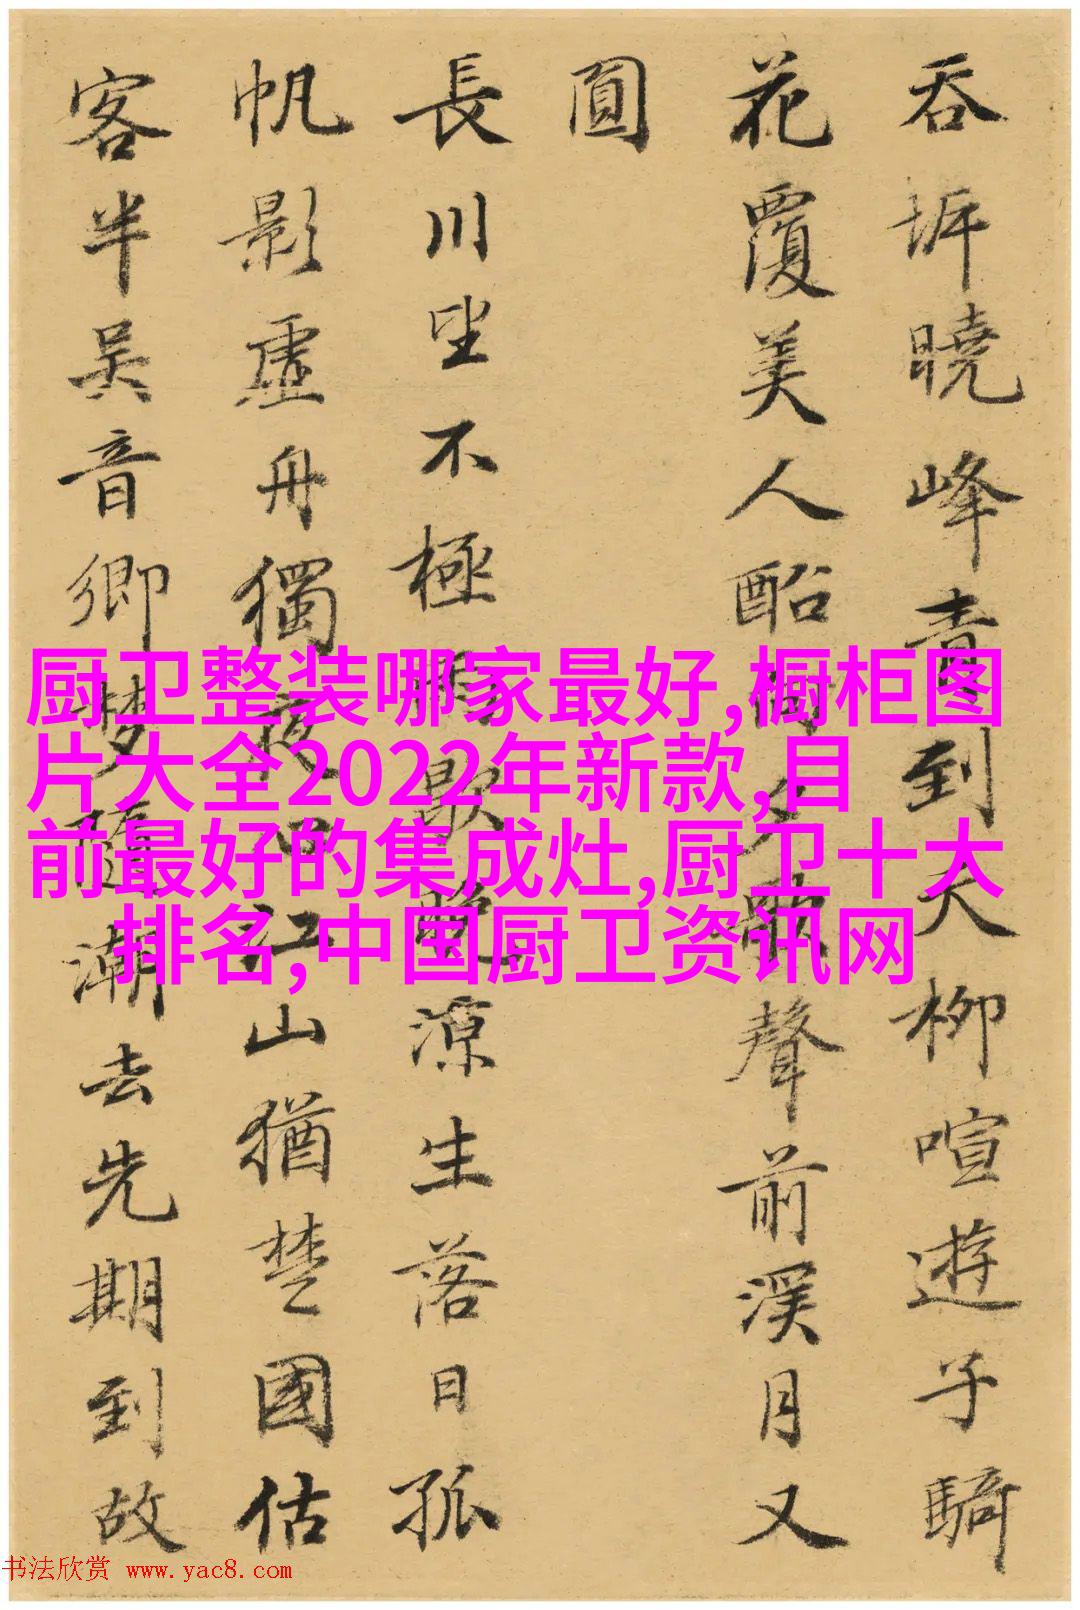 吞坼曉峰青到天柳喧遊子騎
花覆美人酩聲前溪月又
圓
長川坐不極歇晚涼生落日孤
帆影虛舟獨夜江山猶楚國估
客半吳音鄉夢隨潮去先期到故
厨卫整装哪家最好,橱柜图
片大全2022年新款,目
前最好的集成灶,厨卫十大
排名,中国厨卫资讯网
书法欣赏 www.yac8.com